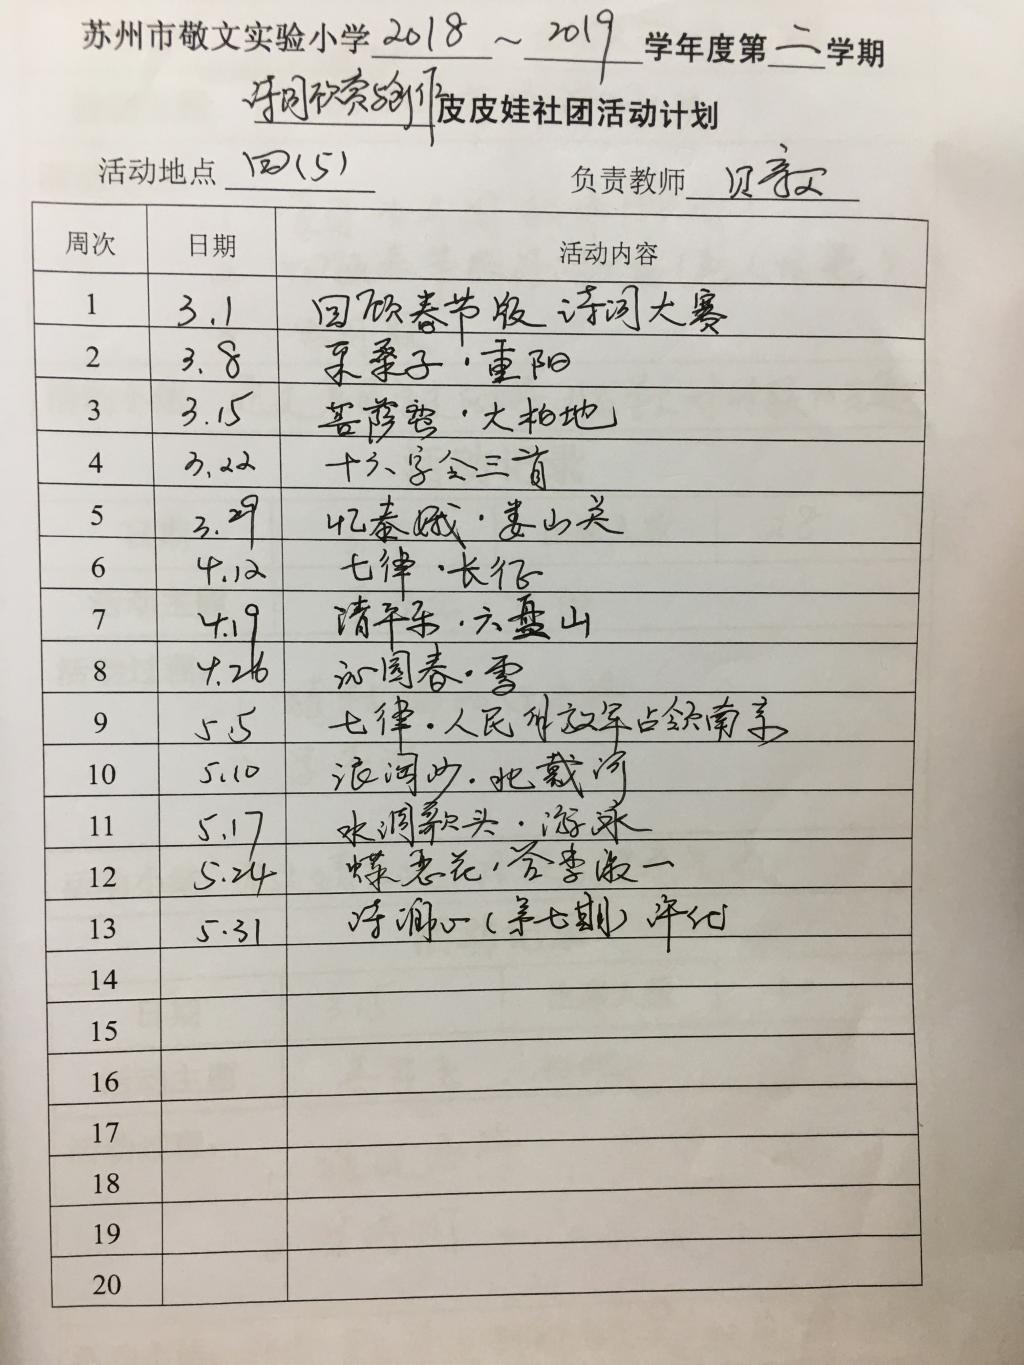 苏州市敬文实验小学 2018 ~ 2019 学年度第 二 学期
诗词欣赏与创作 皮皮娃社团活动计划
活动地点 四(5) 负责教师 贝
周次 日期 活动内容
1 3.1 回顾春节版 诗词大赛
2 3.8 采桑子·重阳
3 3.15 菩萨蛮·大柏地
4 3.22 十六字令三首
5 3.29 忆秦娥·娄山关
6 4.12 七律·长征
7 4.19 清平乐·六盘山
8 4.26 沁园春·雪
9 5.5 七律·人民解放军占领南京
10 5.10 浪淘沙·北戴河
11 5.17 水调歌头·游泳
12 5.24 蝶恋花·答李淑一
13 5.31 诗润心(第七期)评比
14
15
16
17
18
19
20